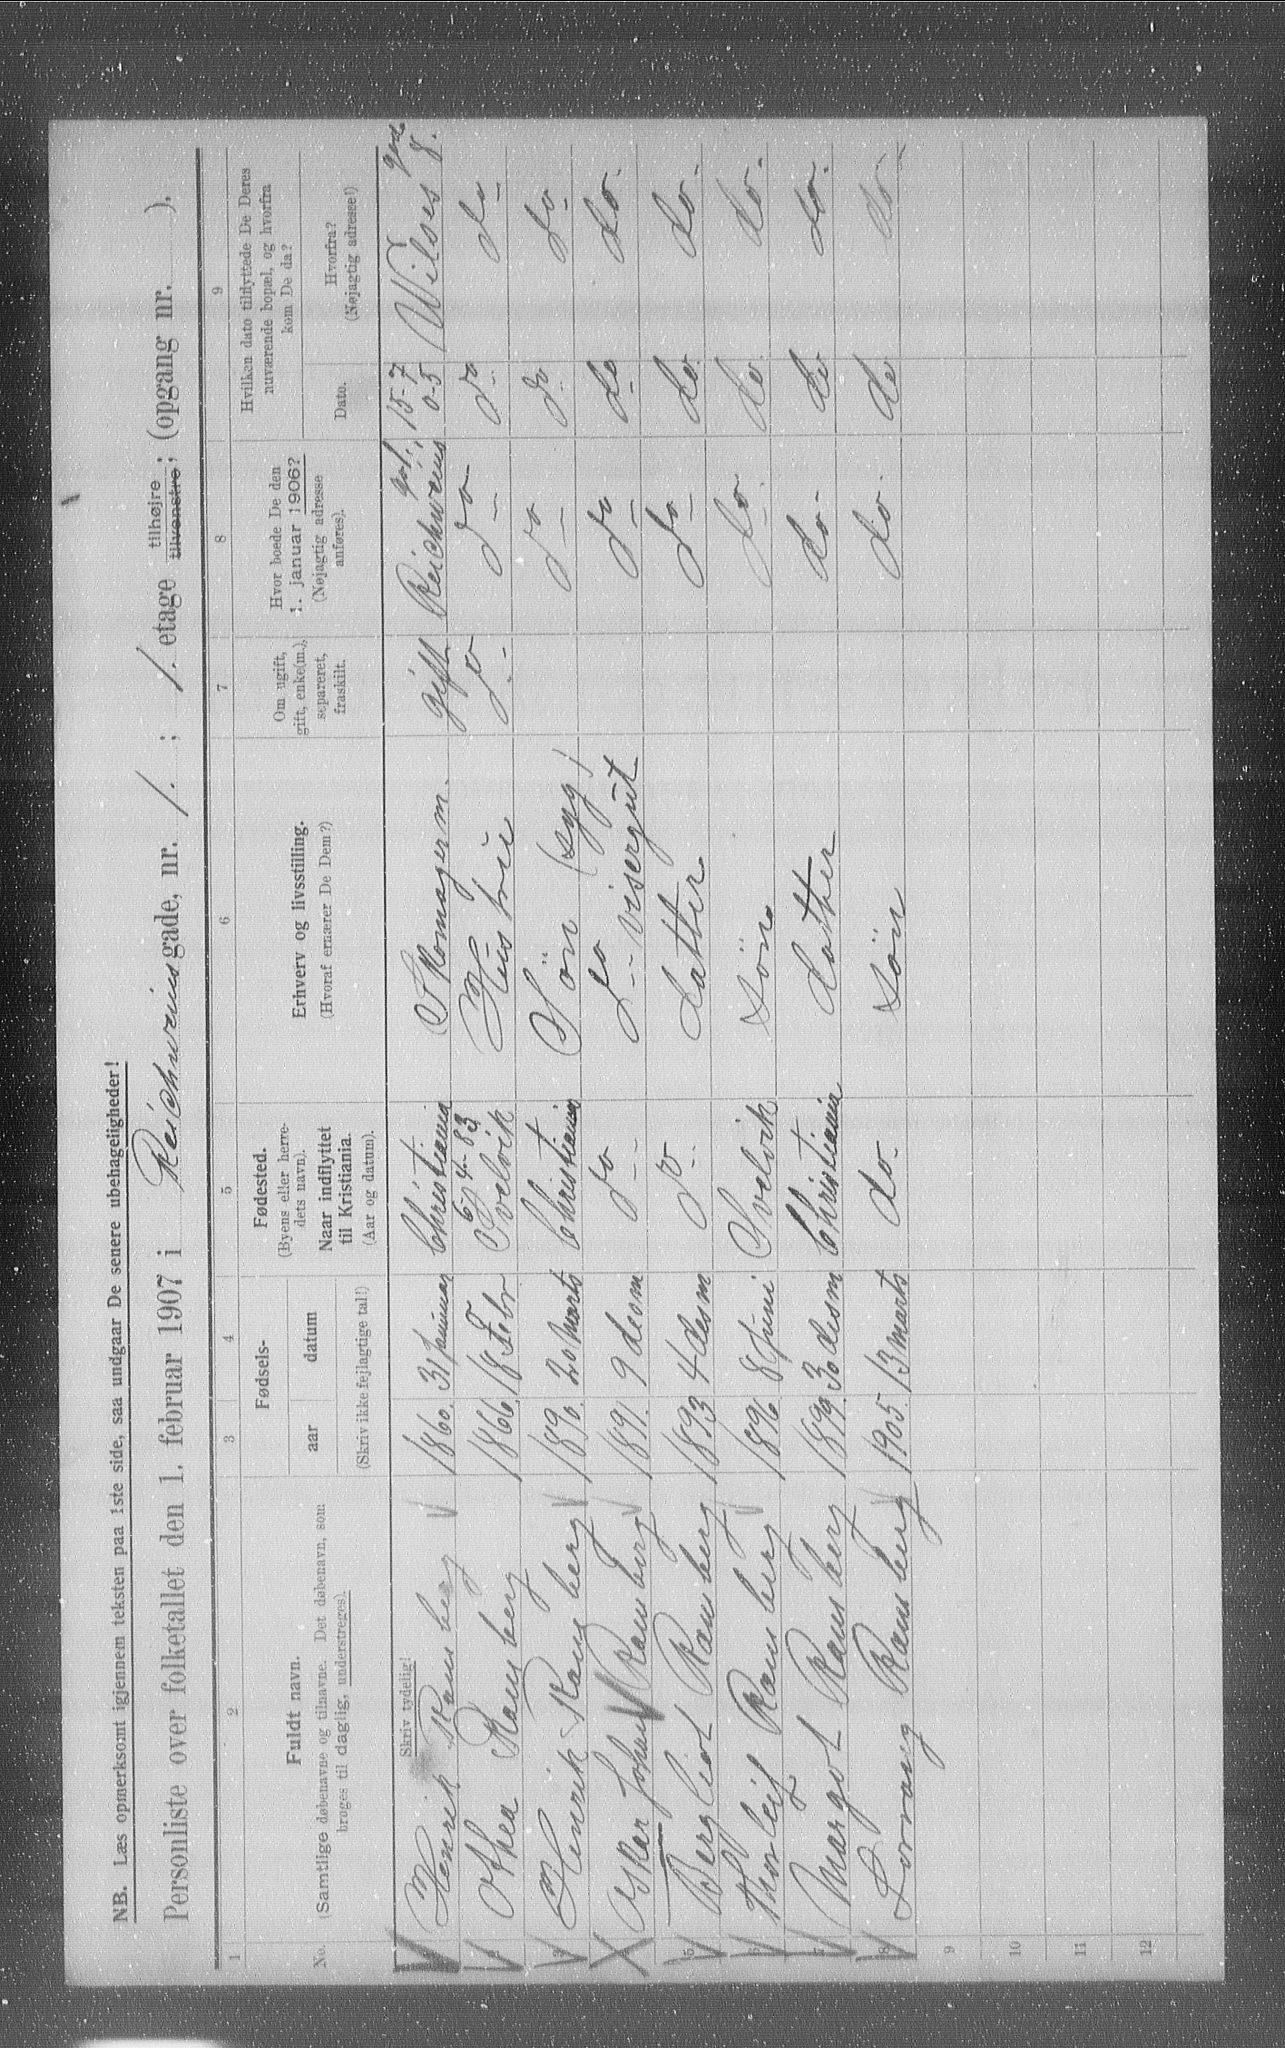 NB. Læs opmerksomt igjennem teksten paa 1ste side, saa undgaar De senere ubehageligheder!
Personliste over folketallet den 1. februar 1907 i Reichweinsgade, nr. 1. ; 1. etage tilhøjre tilvenstre; (opgang nr. ).
1 2 3 4 5 6 7 8 9
No.
Fuldt navn.
(Samtlige døbenavne og tilnavne. Det døbenavn, som
bruges til daglig, understreges).
Skriv tydelig!
Fødsels-
aar datum
(Skriv ikke fejlagtige tal!)
Fødested.
(Byens eller herre-
dets navn).
Naar indflyttet
til Kristiania.
(Aar og datum).
Erhverv og livsstilling.
(Hvoraf ernærer De Dem?)
Om ugift,
gift, enke(m.),
separeret,
fraskilt.
Hvor boede De den
1. januar 1906?
(Nøjagtig adresse
anføres).
Hvilken dato tilflyttede De Deres
nuværende bopæl, og hvorfra
kom De da?
Dato.
Hvorfra?
(Nøjagtig adresse!)
Henrik Ramberg 1860. 31 Januar Christiania Skomagerm. gift Reichweins 15-7 05 Wilses gade 8.
2 Othea Ramberg 1866 18 Febr 6/4-83 Svelvik Hustru do do do do
3 Henrik Ramberg 1890. 20 Marts Christiania Sön (syg) do do do
Osker Johan Ramberg 1891. 9 decm do do visergut do do do
5 Bergliot Ramberg 1893 4 desm do datter do do do
6 Thorleif Ramberg 1896 8 Juni Svelvik sön do do do
7 Margot Ramberg 1899. 30 desm Christiania datter do do do
8 Ramberg 1905. 13 marts do sön do do do
9
10
11
12